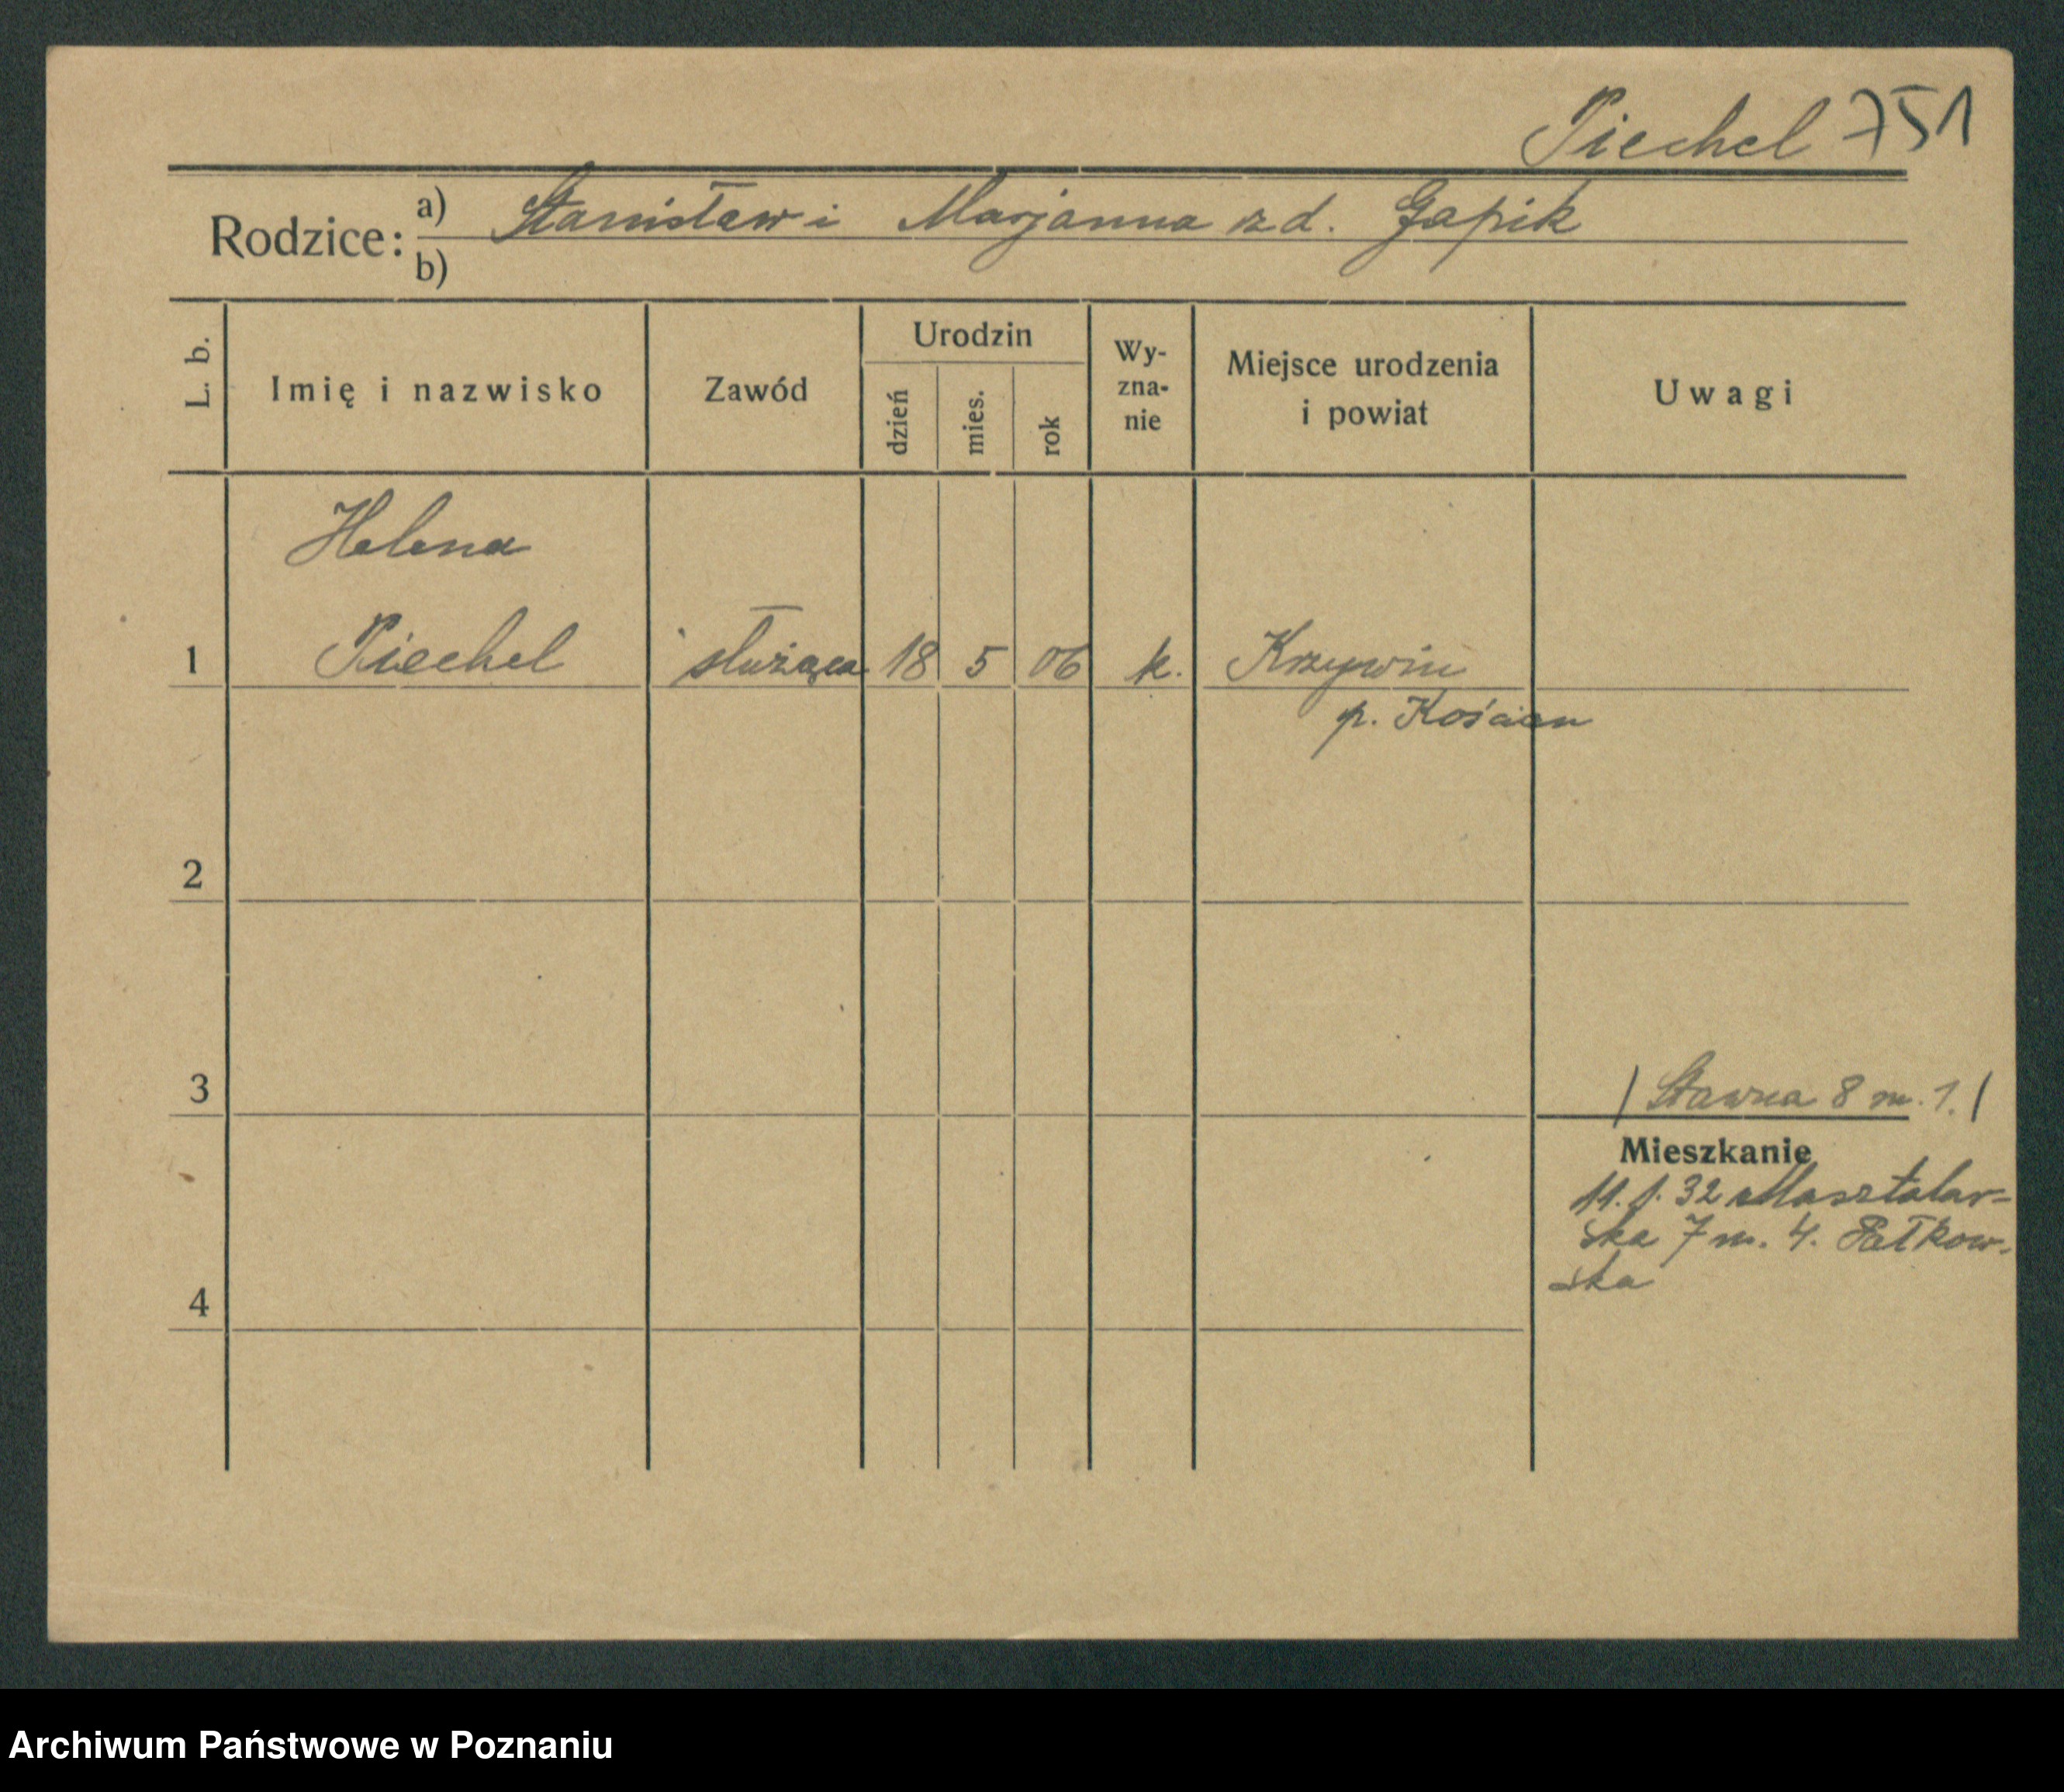 Piechel 751
Rodzice: a) Stanisław i Marjanna z d. Gapik
b)
L. b. Imię i nazwisko Zawód Urodzin dzień mies. rok Wy-zna-nie Miejsce urodzenia i powiat Uwagi
Helena
1 Piechel służąca 18 5 06 k. Krzywiń
p. Kościan
2
3 / Stawna 8 m. 1. /
Mieszkanie
11. 1. 32 Masztalar-
ska 7 m. 4. Pałkow-
ska
4
Archiwum Państwowe w Poznaniu